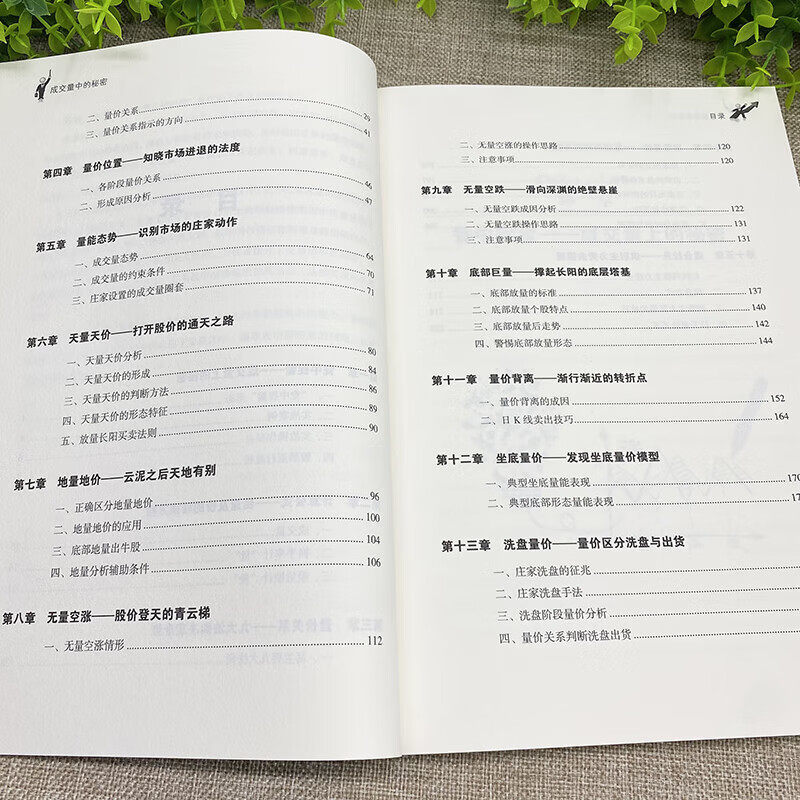 成交量中的秘密
二、量价关系 29
三、量价关系指示的方向 41
第四章 量价位置——知晓市场进退的法度
一、各阶段量价关系 46
二、形成原因分析 47
第五章 量能态势——识别市场的庄家动作
一、成交量态势 64
二、成交量的约束条件 70
三、庄家设置的成交量圈套 71
第六章 天量天价——打开股价的通天之路
一、天量天价分析 80
二、天量天价的形成 84
三、天量天价的判断方法 86
四、天量天价的形态特征 89
五、放量长阳买卖法则 90
第七章 地量地价——云泥之后天地有别
一、正确区分地量地价 96
二、地量地价的应用 100
三、底部地量出牛股 104
四、地量分析辅助条件 106
第八章 无量空涨——股价登天的青云梯
一、无量空涨情形 112
目录
二、无量空涨的操作思路 120
三、注意事项 120
第九章 无量空跌——滑向深渊的绝壁悬崖
一、无量空跌成因分析 122
二、无量空跌操作思路 131
三、注意事项 131
第十章 底部巨量——撑起长阳的底层塔基
一、底部放量的标准 137
二、底部放量个股特点 140
三、底部放量后走势 142
四、警惕底部放量形态 144
第十一章 量价背离——渐行渐近的转折点
一、量价背离的成因 152
二、日K线卖出技巧 164
第十二章 坐底量价——发现坐底量价模型
一、典型坐底量能表现 170
二、典型底部形态量能表现
第十三章 洗盘量价——量价区分洗盘与出货
一、庄家洗盘的征兆
二、庄家洗盘手法
三、洗盘阶段量价分析
四、量价关系判断洗盘出货